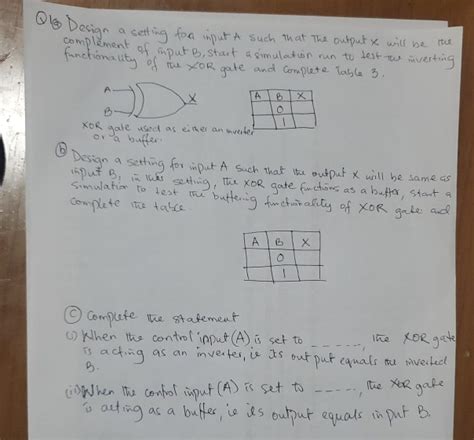 Q1a Design a setting for input A such that the output X will be the
complement of input B, start a simulation run to test the inverting
functionality of the XOR gate and complete Table 3.
A
B
X
A B X
0
1
XOR gate used as either an inverter
or a buffer.
(b) Design a setting for input A such that the output X will be same as
input B, in this setting, the XOR gate functions as a buffer, start a
simulation to test the buffering functionality of XOR gate and
complete the table.
A B X
0
1
(c) Complete the statement
(i) When the control input (A) is set to _ _ _ _ _, the XOR gate
is acting as an inverter, ie its output equals the inverted
B.
(ii) When the control input (A) is set to _ _ _ _ _, the XOR gate
is acting as a buffer, ie its output equals input B.